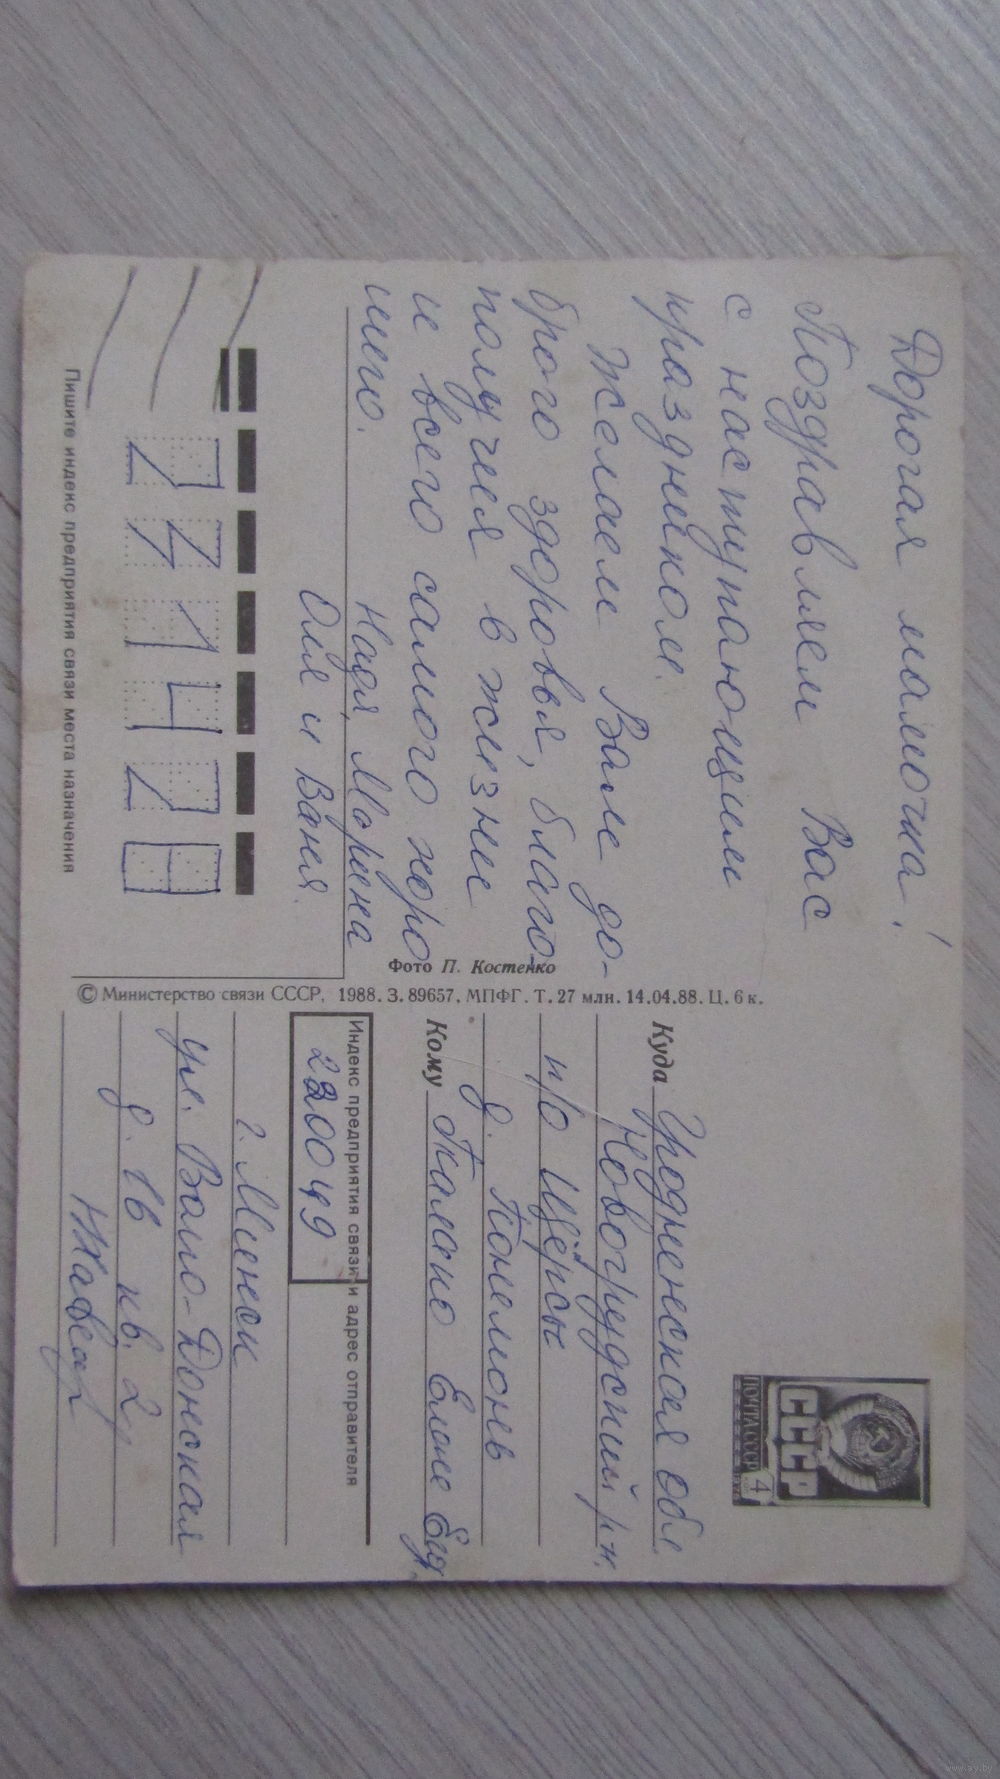 Дорогая мамочка!
Поздравляем Вас
с наступающим
праздником.
Желаем Вам до-
брого здоровья, благо-
получия в жизни
и всего самого хоро
шего.
Надя, Марина
Оля и Ваня.
231428
Пишите индекс предприятия связи места назначения
Фото П. Костенко
© Министерство связи СССР, 1988. З. 89657. МПФГ. Т. 27 млн. 14.04.88. Ц. 6 к.
СССР
ПОЧТА СССР 4
Куда Гродненская обл
Новогрудский р-н.
п/о Щорсы
д.
Кому Елене
Индекс предприятия связи и адрес отправителя
220049
г. Минск
ул. Волго-Донская
д. 16 кв. 2
www.ay.by